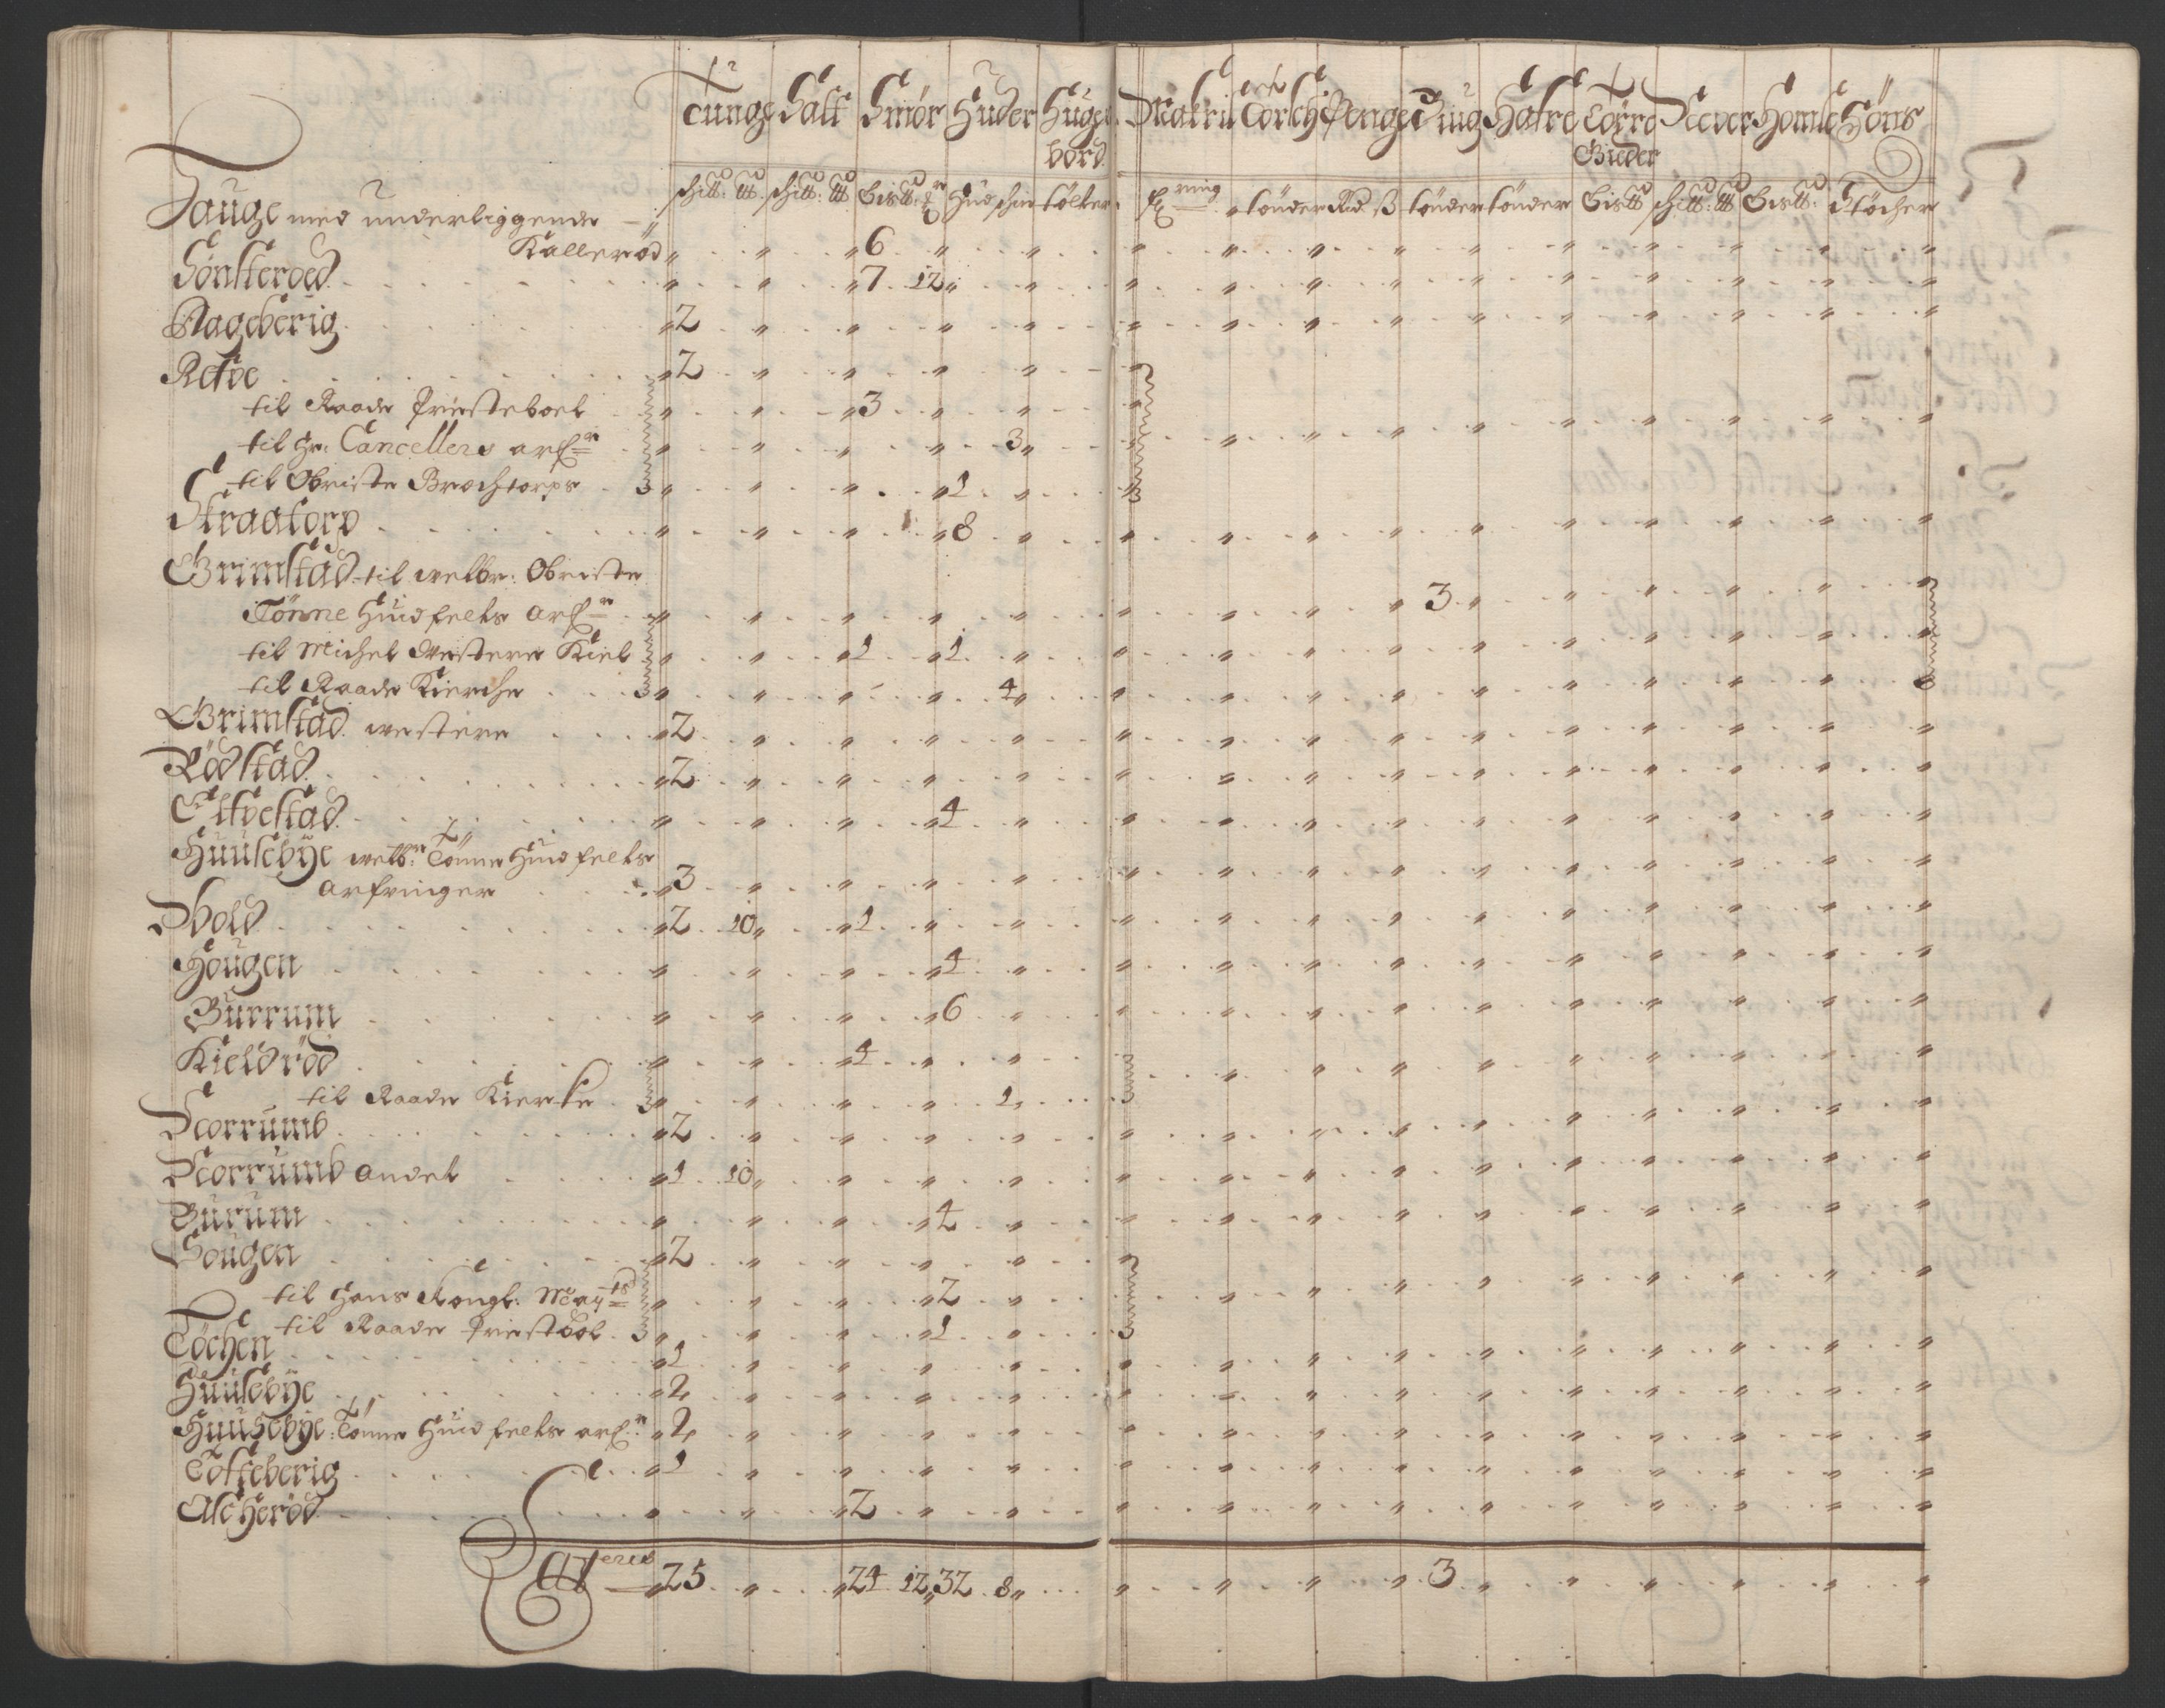 Tunge Salt Smör Huder Huge Makril Torsch Penge Rug Hafre Törre Neever Homle Höns
bord Gieder
schltt: ltt schltt: ltt Bisltt: Hud schin tolter tönder Rd ß tönder tönder Bisltt schltt: ltt Bisltt: Stöcher
Hauge med underliggende
Kallerød 6
Sönsteroed 7 12
Rageberig 2
Refve 2
til Raade Priesteboel 3
til Hr: Cancellers arf: 3
til Obriste Brochtorps 1
Straatorp 8
Grimstad til welbr: Obriste
Tönne Huidfelts Arf: 3
til Michel Westere Kiel 1 1
til Raade Kierche 4
Grimstad westere 2
Rödstad 2
Elfvestad 4
Huusebÿe welb: Tönne Huidfelts
Arfvinger 3
Dhold 2 10 1
Hougen 4
Burrum 6
Kieldröd 4
til Raade Kierke 1
Norrumb 2
Norrumb andel 1 10
Burum 4
Hougen 2
til Hans Kongl: Maÿts 2
til Raade Priestbol 1
Töchen 1
Huusebÿe 2
Huusebÿe: Tönne Huidfelts arf: 2
Tofteberig 1
Ascheröd 2
Lateris 25 24 12 32 8 3